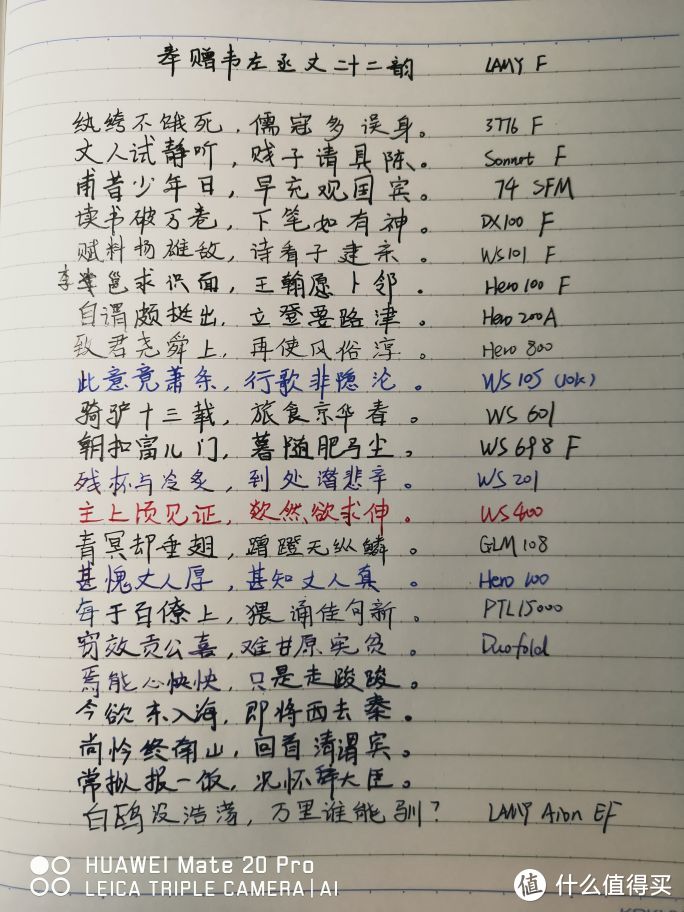 奉赠韦左丞丈二十二韵 LAMY F
纨绔不饿死，儒冠多误身。 3776 F
丈人试静听，贱子请具陈。 Sonnet F
甫昔少年日，早充观国宾。 74 SFM
读书破万卷，下笔如有神。 DX100 F
赋料扬雄敌，诗看子建亲。 WS101 F
李邕求识面，王翰愿卜邻。 Hero 100 F
自谓颇挺出，立登要路津。 Hero 200A
致君尧舜上，再使风俗淳。 Hero 800
此意竟萧条，行歌非隐沦。 WS 105 (10k)
骑驴十三载，旅食京华春。 WS 601
朝扣富儿门，暮随肥马尘。 WS 698 F
残杯与冷炙，到处潜悲辛。 WS 201
主上顷见证，欻然欲求伸。 WS400
青冥却垂翅，蹭蹬无纵鳞。 GLM 108
甚愧丈人厚，甚知丈人真。 Hero 100
每于百僚上，猥诵佳句新。 PTL15000
窃效贡公喜，难甘原宪贫。 Duofold
焉能心怏怏，只是走踆踆。
今欲东入海，即将西去秦。
尚怜终南山，回首清渭宾。
常拟报一饭，况怀辞大臣。
白鸥没浩荡，万里谁能驯？ LAMY Aion EF
HUAWEI Mate 20 Pro
LEICA TRIPLE CAMERA | AI
值 什么值得买